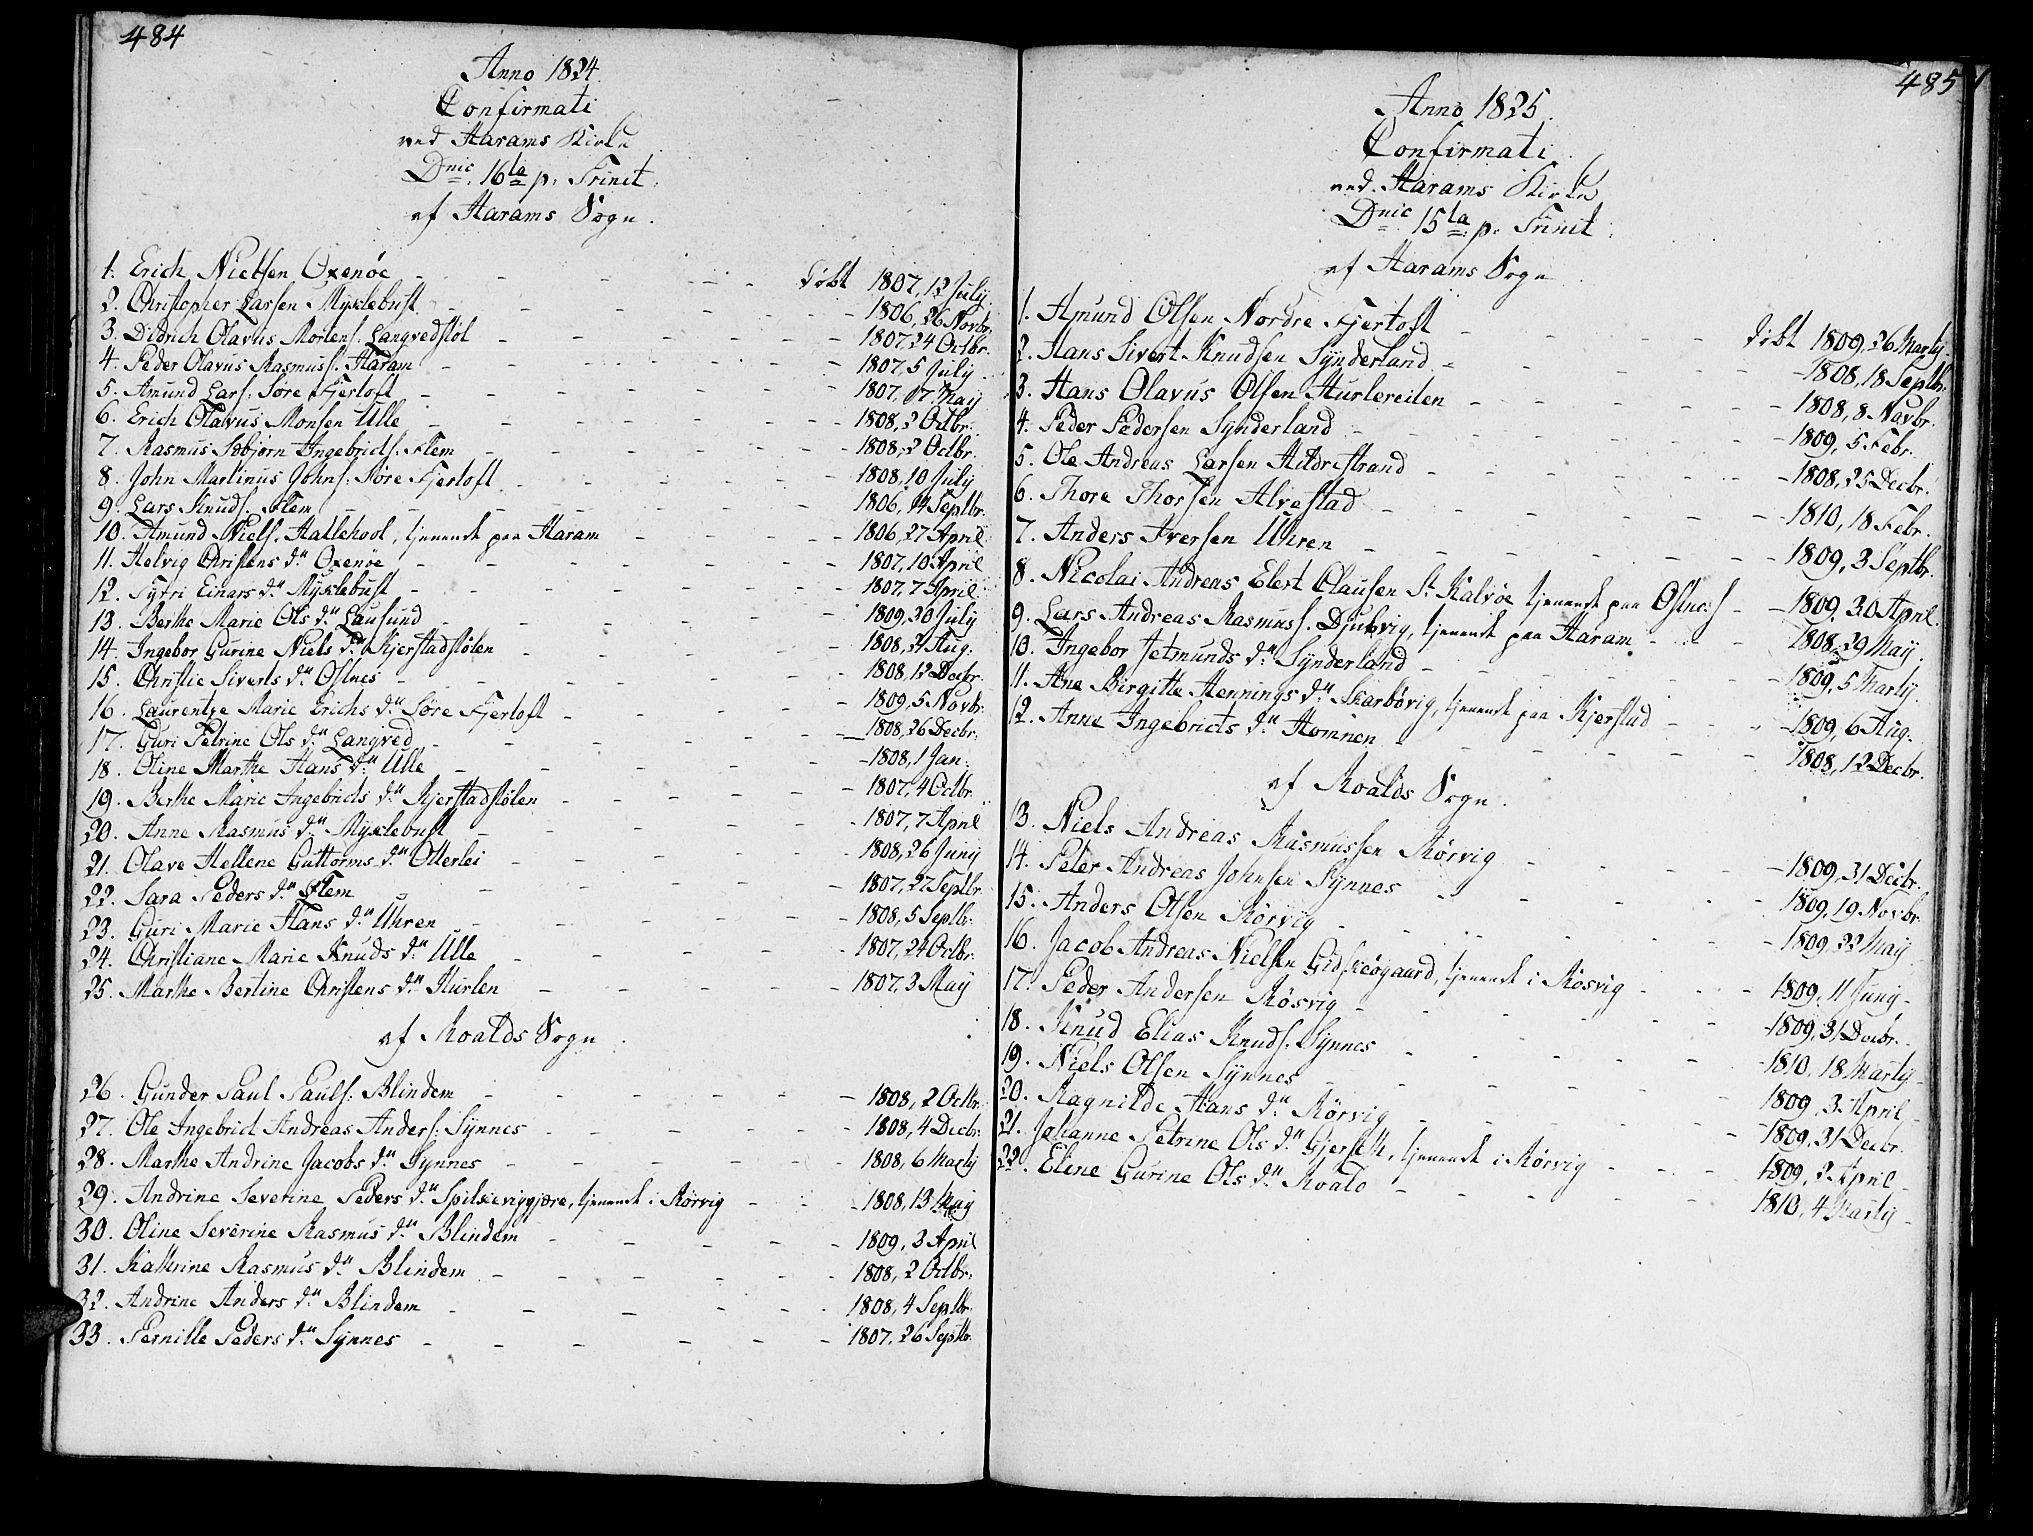 484
Anno 1824.
Confirmati
ved Harams Kirke
Dnic. 16ta p. Trinit.
af Harams Sogn.
1. Erich Nielsen Oxenöe - - - - døbt 1807, 12 July.
2. Christopher Larsen Myxlebust - - - 1806, 26 Novbr.
3. Didrich Olavus Mortens. Langvedstöl - - - 1807, 24 Octbr.
4. Peder Olavus Rasmuss. Haram - - - 1807, 5 July
5. Amund Lars. Söre Fjertoft - - - 1807, 17 May
6. Erich Olavus Monsen Ulle - - - 1808, 2 Octbr.
7. Rasmus Asbjørn Ingebricts. Flem - - - 1808, 2 Octbr.
8. John Martinus Johns. Söre Fjertoft - - - 1808, 10 July
9. Lars Knuds. Flem - - - 1806, 14 Septbr.
10. Amund Niels. Hatlehool, tjenende paa Haram - - - 1806, 27 April
11. Helvig Christens dr. Oxenöe - - - 1807, 10 April
12. Syfri Einars dr. Myxlebust - - - 1807, 7 April
13. Berthe Marie Ols dr. Lausund - - - 1809, 30 July
14. Ingebor Gurine Niels dr. Kjerstadstölen - - - 1808, 21 Aug.
15. Christie Siverts dr. Ostnes - - - 1808, 12 Decbr.
16. Laurentze Marie Erichs dr. Söre Fjertoft - - - 1809, 5 Novbr.
17. Guri Petrine Ols dr. Langved - - - 1808, 26 Decbr.
18. Oline Marthe Hans dr. Ulle - - - 1808, 1 Jan.
19. Berthe Marie Ingebricts dr. Kjerstadstölen - - - 1807, 4 Octbr.
20. Anne Rasmus dr. Myxlebust - - - 1807, 7 April
21. Olave Hellene Guttorms dr. Otterlei - - - 1808, 26 Juny
22. Sara Peders dr. Flem - - - 1807, 27 Septbr.
23. Guri Marie Hans dr. Uhren - - - 1808, 5 Septbr.
24. Christiane Marie Knuds dr. Ulle - - - 1807, 24 Octbr.
25. Marthe Bertine Christens dr. Hurlen - - - 1807, 3 May
af Roalds Sogn.
26. Gunder Paul Pauls. Blindem - - - 1808, 2 Octbr.
27. Ole Ingebrict Andreas Anders. Synnes - - - 1808, 4 Decbr.
28. Marthe Andrine Jacobs dr. Synnes - - - 1808, 6 Marty
29. Andrine Severine Peders dr. Spilkeviggjære, tjenende i Rörvig - - - 1808, 13 May
30. Oline Severine Rasmus dr. Blindem - - - 1809, 3 April
31. Kathrine Rasmus dr. Blindem - - - 1808, 2 Octbr.
32. Andrine Anders dr. Blindem - - - 1808, 4 Septbr.
33. Pernille Peders dr. Synnes - - - 1807, 26 Septbr.
485
Anno 1825.
Confirmati
ved Harams Kirke
Dnic 15ta p. Trinit.
af Harams Sogn
1. Amund Olsen Nordre Fjertoft - - - døbt 1809, 26 Marty.
2. Hans Sivert Knudsen Synderland - - - 1808, 18 Septbr.
3. Hans Olavus Olsen Hurlereiten - - - 1808, 8 Novbr.
4. Peder Pedersen Synderland - - - 1809, 5 Febr.
5. Ole Andreas Larsen Hildrestrand - - - 1808, 25 Decbr.
6. Thore Thorsen Alvestad - - - 1810, 18 Febr.
7. Anders Iversen Uhren - - - 1809, 3 Septbr.
8. Nicolai Andreas Elert Olausen St. Kalvöe tjenende paa Ostnes - - 1809, 30 April.
9. Lars Andreas Rasmuss. Djubvig, tjenende paa Haram - - - 1808, 29 May.
10. Ingebor Jetmunds dr. Synderland - - - 1809, 5 Marty
11. Ane Birgitte Hennings dr. Skarbövig, tjenende paa Kjerstad - - - 1809, 6 Aug.
12. Anne Ingebricts dr. Hamnen - - - 1808, 12 Decbr.
af Roalds Sogn.
13. Niels Andreas Rasmussen Rörvig - - - 1809, 31 Decbr.
14. Peter Andreas Johnsen Synnes - - - 1809, 19 Novbr.
15. Anders Olsen Rörvig - - - 1809, 22 May
16. Jacob Andreas Nielsen Gidskeögaard, tjenende i Rösvig - - - 1809, 11 Juny
17. Peder Andersen Rösvig - - - 1809, 31 Decbr.
18. Knud Elias Knuds. Synnes - - - 1810, 18 Marty
19. Niels Olsen Synnes - - - 1809, 3 April
20. Ragnilde Hans dr. Rörvig - - - 1809, 31 Decbr.
21. Johanne Petrine Ols dr. Gjerseth, tjenende i Rörvig - - - 1809, 2 April
22. Eline Gurine Ols dr. Roald - - - 1810, 4 Marty